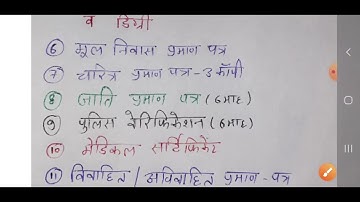 व डिग्री
⑥ मूल निवास प्रमाण पत्र
⑦ चरित्र प्रमाण पत्र - 3 कॉपी
⑧ जाति प्रमाण पत्र (6 माह)
⑨ पुलिस वेरिफिकेशन (6 माह)
⑩ मेडिकल सर्टिफिकेट
⑪ विवाहित / अविवाहित प्रमाण - पत्र